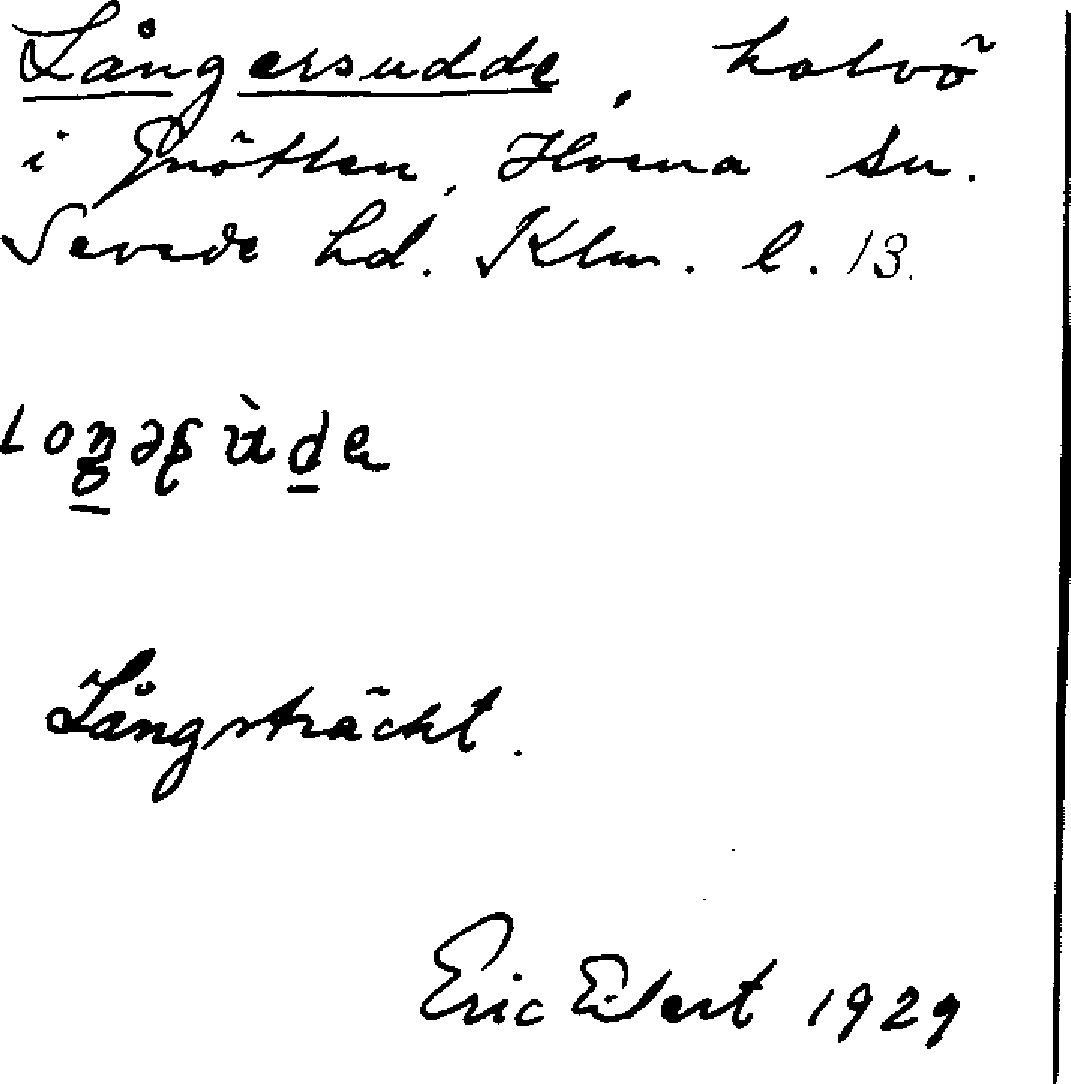 Långersudde, halvö
i Gnötteln, Hvena sn.
Sevede hd. Klm. l. 13.
Långsträckt.
Eric Eilert 1929